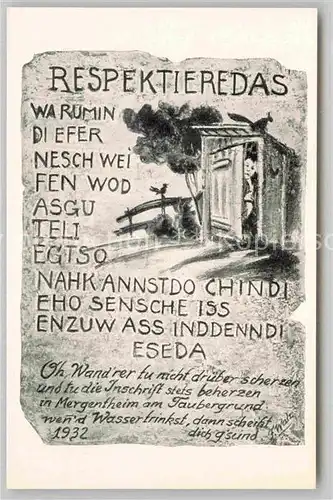 RESPEKTIEREDAS
WARUMIN
DI EFER
NESCH WEI
FEN WOD
ASGU
TELI
EGTSO
NAHK ANNSTDO CHINDI
EHO SENSCHE ISS
ENZUW ASS INDDENNDI
ESEDA
Oh Wand'rer tu nicht drüber scherzen
und tu die Inschrift stets beherzen
in Mergentheim am Taubergrund
wen'd Wasser trinkst, dann scheißt
1932 dich g'sund